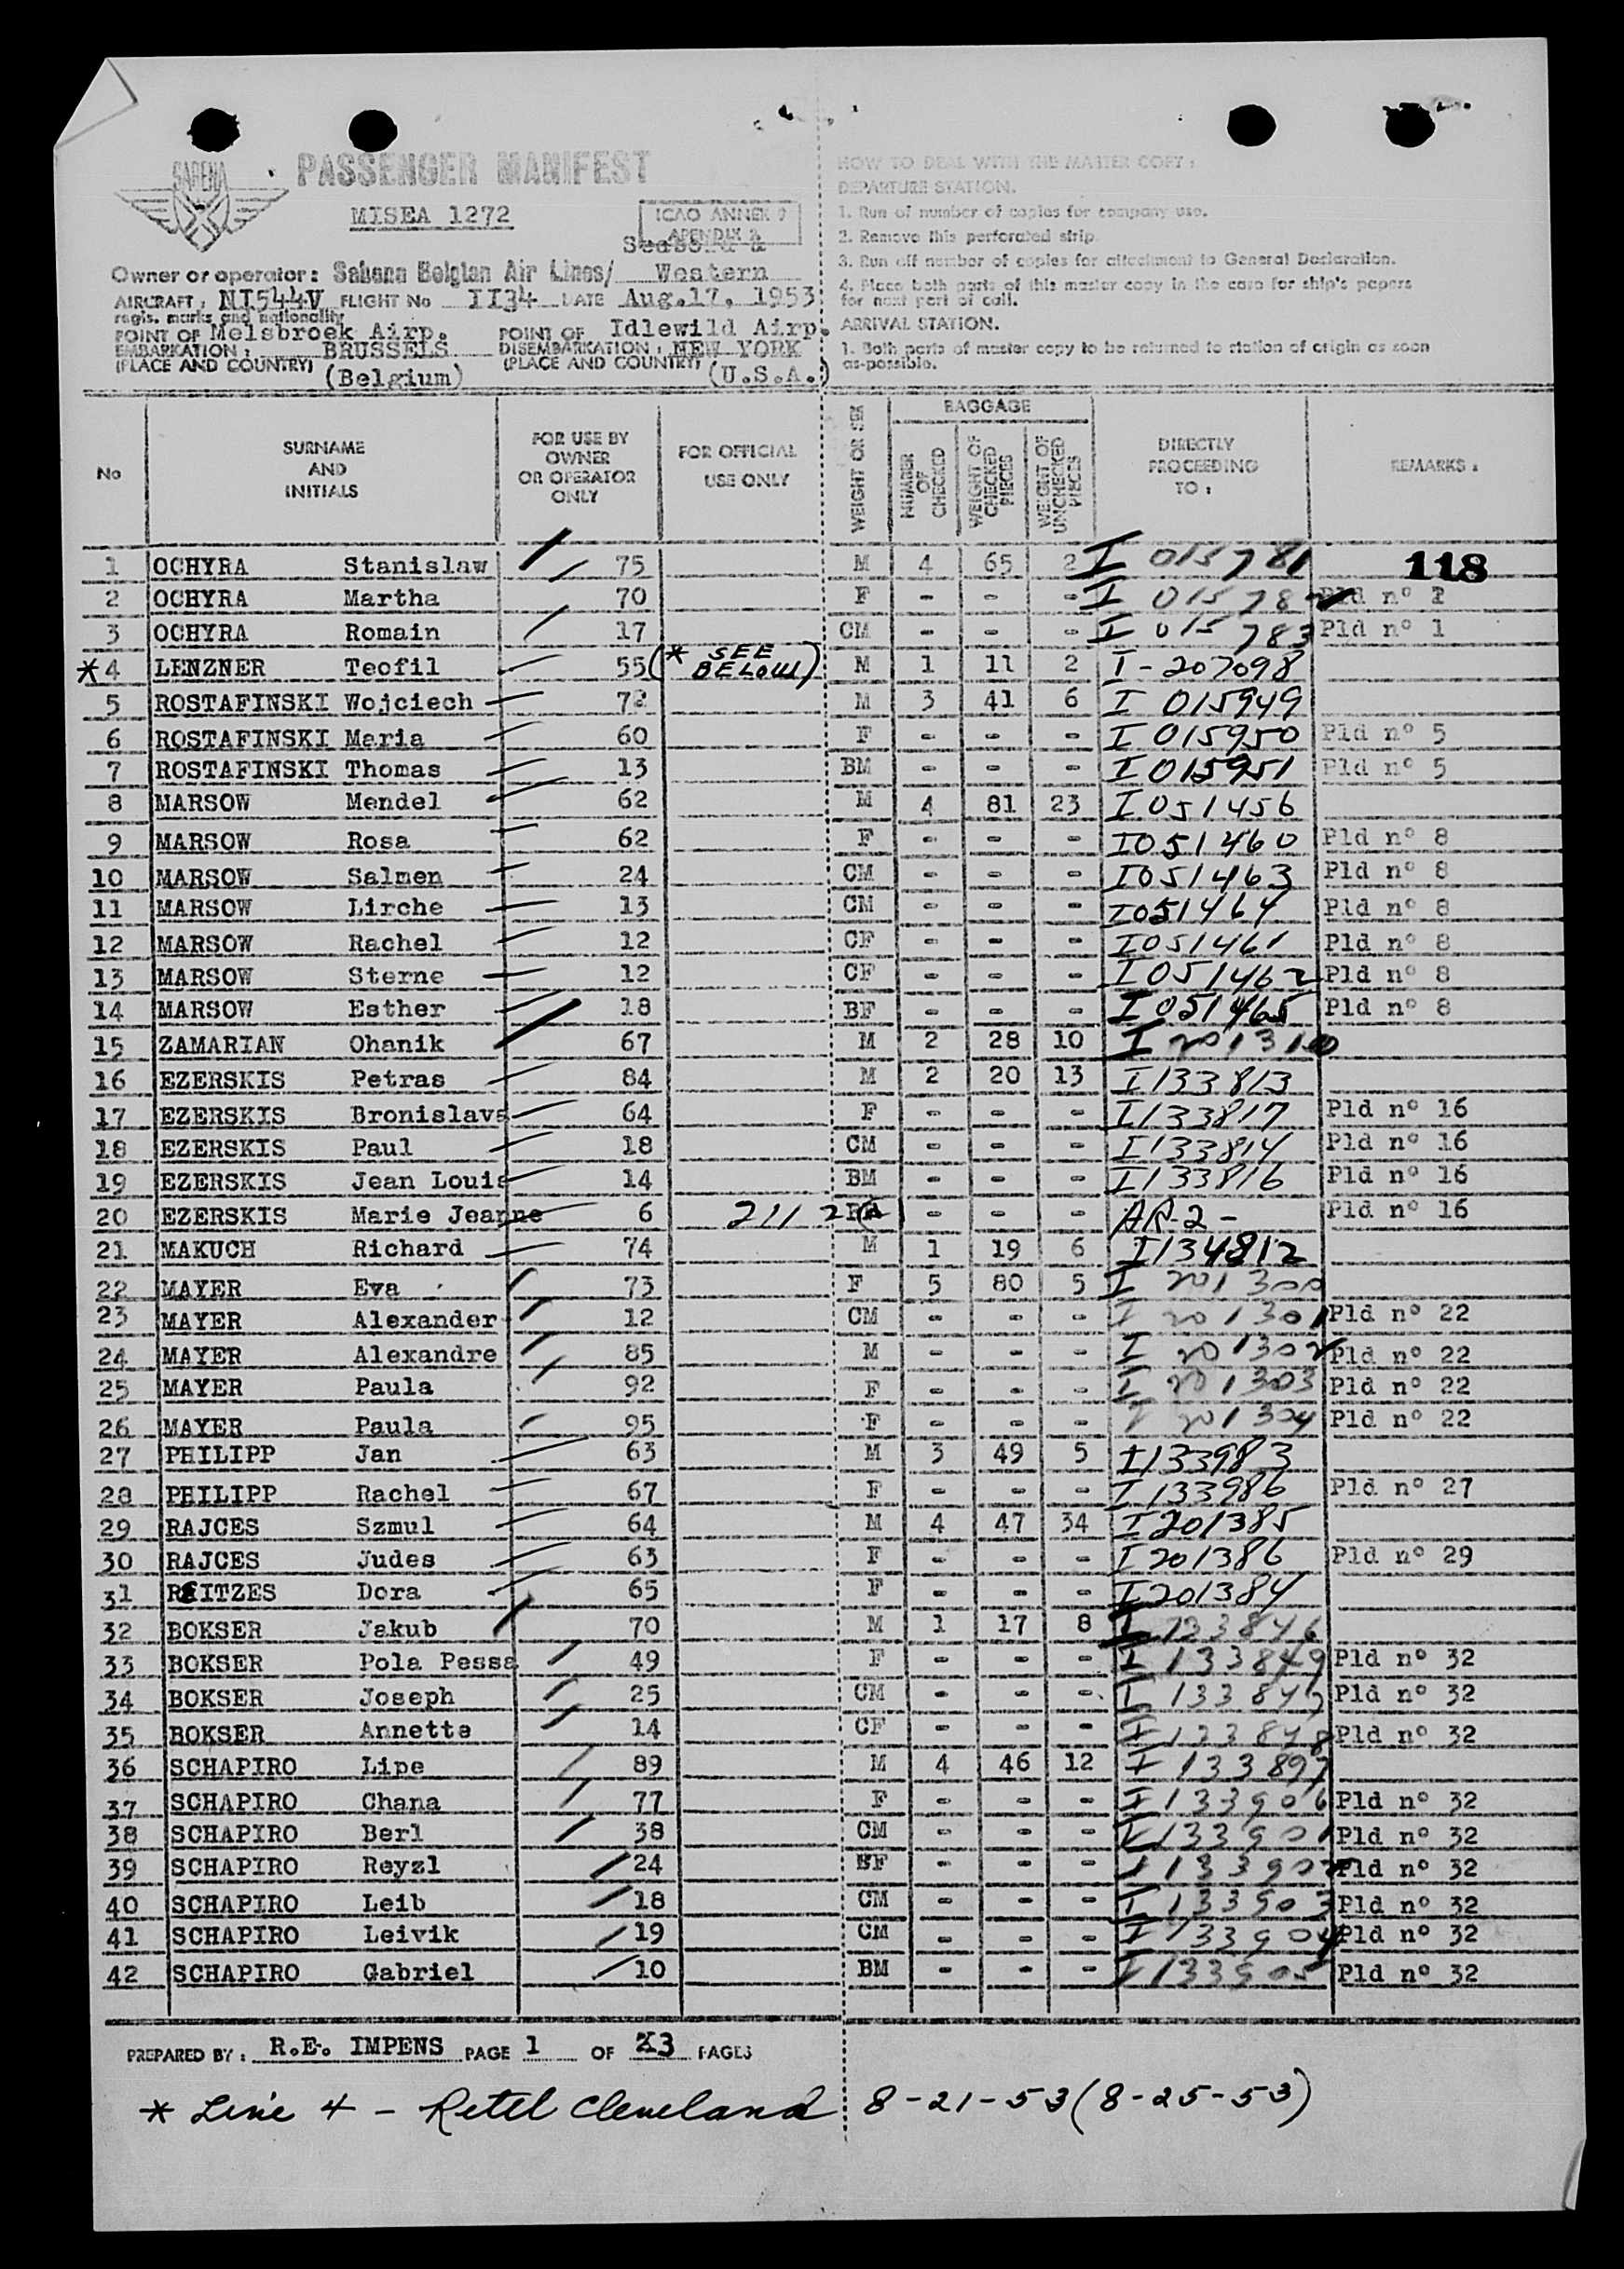 SABENA
PASSENGER MANIFEST
MISEA 1272
ICAO ANNEX 9
APENDIX 2
Seaboard &
Owner or operator: Sabena Belgian Air Lines/ Western
AIRCRAFT: NI544V FLIGHT No II34 DATE Aug.17, 1953
regis. marks and nationality
POINT OF EMBARKATION: (PLACE AND COUNTRY) Melsbroek Airp. BRUSSELS (Belgium)
POINT OF DISEMBARKATION: (PLACE AND COUNTRY) Idlewild Airp. NEW YORK (U.S.A.)
HOW TO DEAL WITH THE MASTER COPY:
DEPARTURE STATION.
1. Run of number of copies for company use.
2. Remove this perforated strip.
3. Run off number of copies for attachment to General Declaration.
4. Place both parts of this master copy in the case for ship's papers
for next port of call.
ARRIVAL STATION.
1. Both parts of master copy to be returned to station of origin as soon
as-possible.
No SURNAME AND INITIALS FOR USE BY OWNER OR OPERATOR ONLY FOR OFFICIAL USE ONLY WEIGHT OR SEX BAGGAGE NUMBER OF CHECKED WEIGHT OF CHECKED PIECES WEIGHT OF UNCHECKED PIECES DIRECTLY PROCEEDING TO: REMARKS:
118
1 OCHYRA Stanislaw 75 M 4 65 2 I 015781
2 OCHYRA Martha 70 F - - - I 015782 Pld nº 1
3 OCHYRA Romain 17 CM - - - I 015783 Pld nº 1
*4 LENZNER Teofil 55 (* SEE BELOW) M 1 11 2 I-207098
5 ROSTAFINSKI Wojciech 72 M 3 41 6 I 015949
6 ROSTAFINSKI Maria 60 F - - - I 015950 Pld nº 5
7 ROSTAFINSKI Thomas 13 BM - - - I 015951 Pld nº 5
8 MARSOW Mendel 62 M 4 81 23 I 051456
9 MARSOW Rosa 62 F - - - I051460 Pld nº 8
10 MARSOW Salmen 24 CM - - - I051463 Pld nº 8
11 MARSOW Lirche 13 CM - - - I051464 Pld nº 8
12 MARSOW Rachel 12 CF - - - I051461 Pld nº 8
13 MARSOW Sterne 12 CF - - - I051462 Pld nº 8
14 MARSOW Esther 18 BF - - - I051465 Pld nº 8
15 ZAMARIAN Ohanik 67 M 2 28 10 I 201310
16 EZERSKIS Petras 84 M 2 20 13 I133813
17 EZERSKIS Bronislava 64 F - - - I133817 Pld nº 16
18 EZERSKIS Paul 18 CM - - - I133814 Pld nº 16
19 EZERSKIS Jean Louis 14 BM - - - I133816 Pld nº 16
20 EZERSKIS Marie Jeanne 6 211 2 - - - AR-2- Pld nº 16
21 MAKUCH Richard 74 M 1 19 6 I134812
22 MAYER Eva 73 F 5 80 5 I 201300
23 MAYER Alexander 12 CM - - - I 201301 Pld nº 22
24 MAYER Alexandre 85 M - - - I 201302 Pld nº 22
25 MAYER Paula 92 F - - - I 201303 Pld nº 22
26 MAYER Paula 95 F - - - I 201304 Pld nº 22
27 PHILIPP Jan 63 M 3 49 5 I133983
28 PHILIPP Rachel 67 F - - - I133986 Pld nº 27
29 RAJCES Szmul 64 M 4 47 34 I201385
30 RAJCES Judes 63 F - - - I201386 Pld nº 29
31 REITZES Dora 65 F - - - I201384
32 BOKSER Jakub 70 M 1 17 8 I 133846
33 BOKSER Pola Pessa 49 F - - - I 133849 Pld nº 32
34 BOKSER Joseph 25 CM - - - I 133847 Pld nº 32
35 BOKSER Annette 14 CF - - - I 133848 Pld nº 32
36 SCHAPIRO Lipe 89 M 4 46 12 I 133897
37 SCHAPIRO Chana 77 F - - - I 133906 Pld nº 32
38 SCHAPIRO Berl 38 CM - - - I133901 Pld nº 32
39 SCHAPIRO Reyzl 24 BF - - - I 133902 Pld nº 32
40 SCHAPIRO Leib 18 CM - - - I 133903 Pld nº 32
41 SCHAPIRO Leivik 19 CM - - - I 133904 Pld nº 32
42 SCHAPIRO Gabriel 10 BM - - - I133905 Pld nº 32
PREPARED BY: R.E. IMPENS PAGE 1 OF 3 PAGES
* Line 4 - Retel Cleveland 8-21-53 (8-25-53)